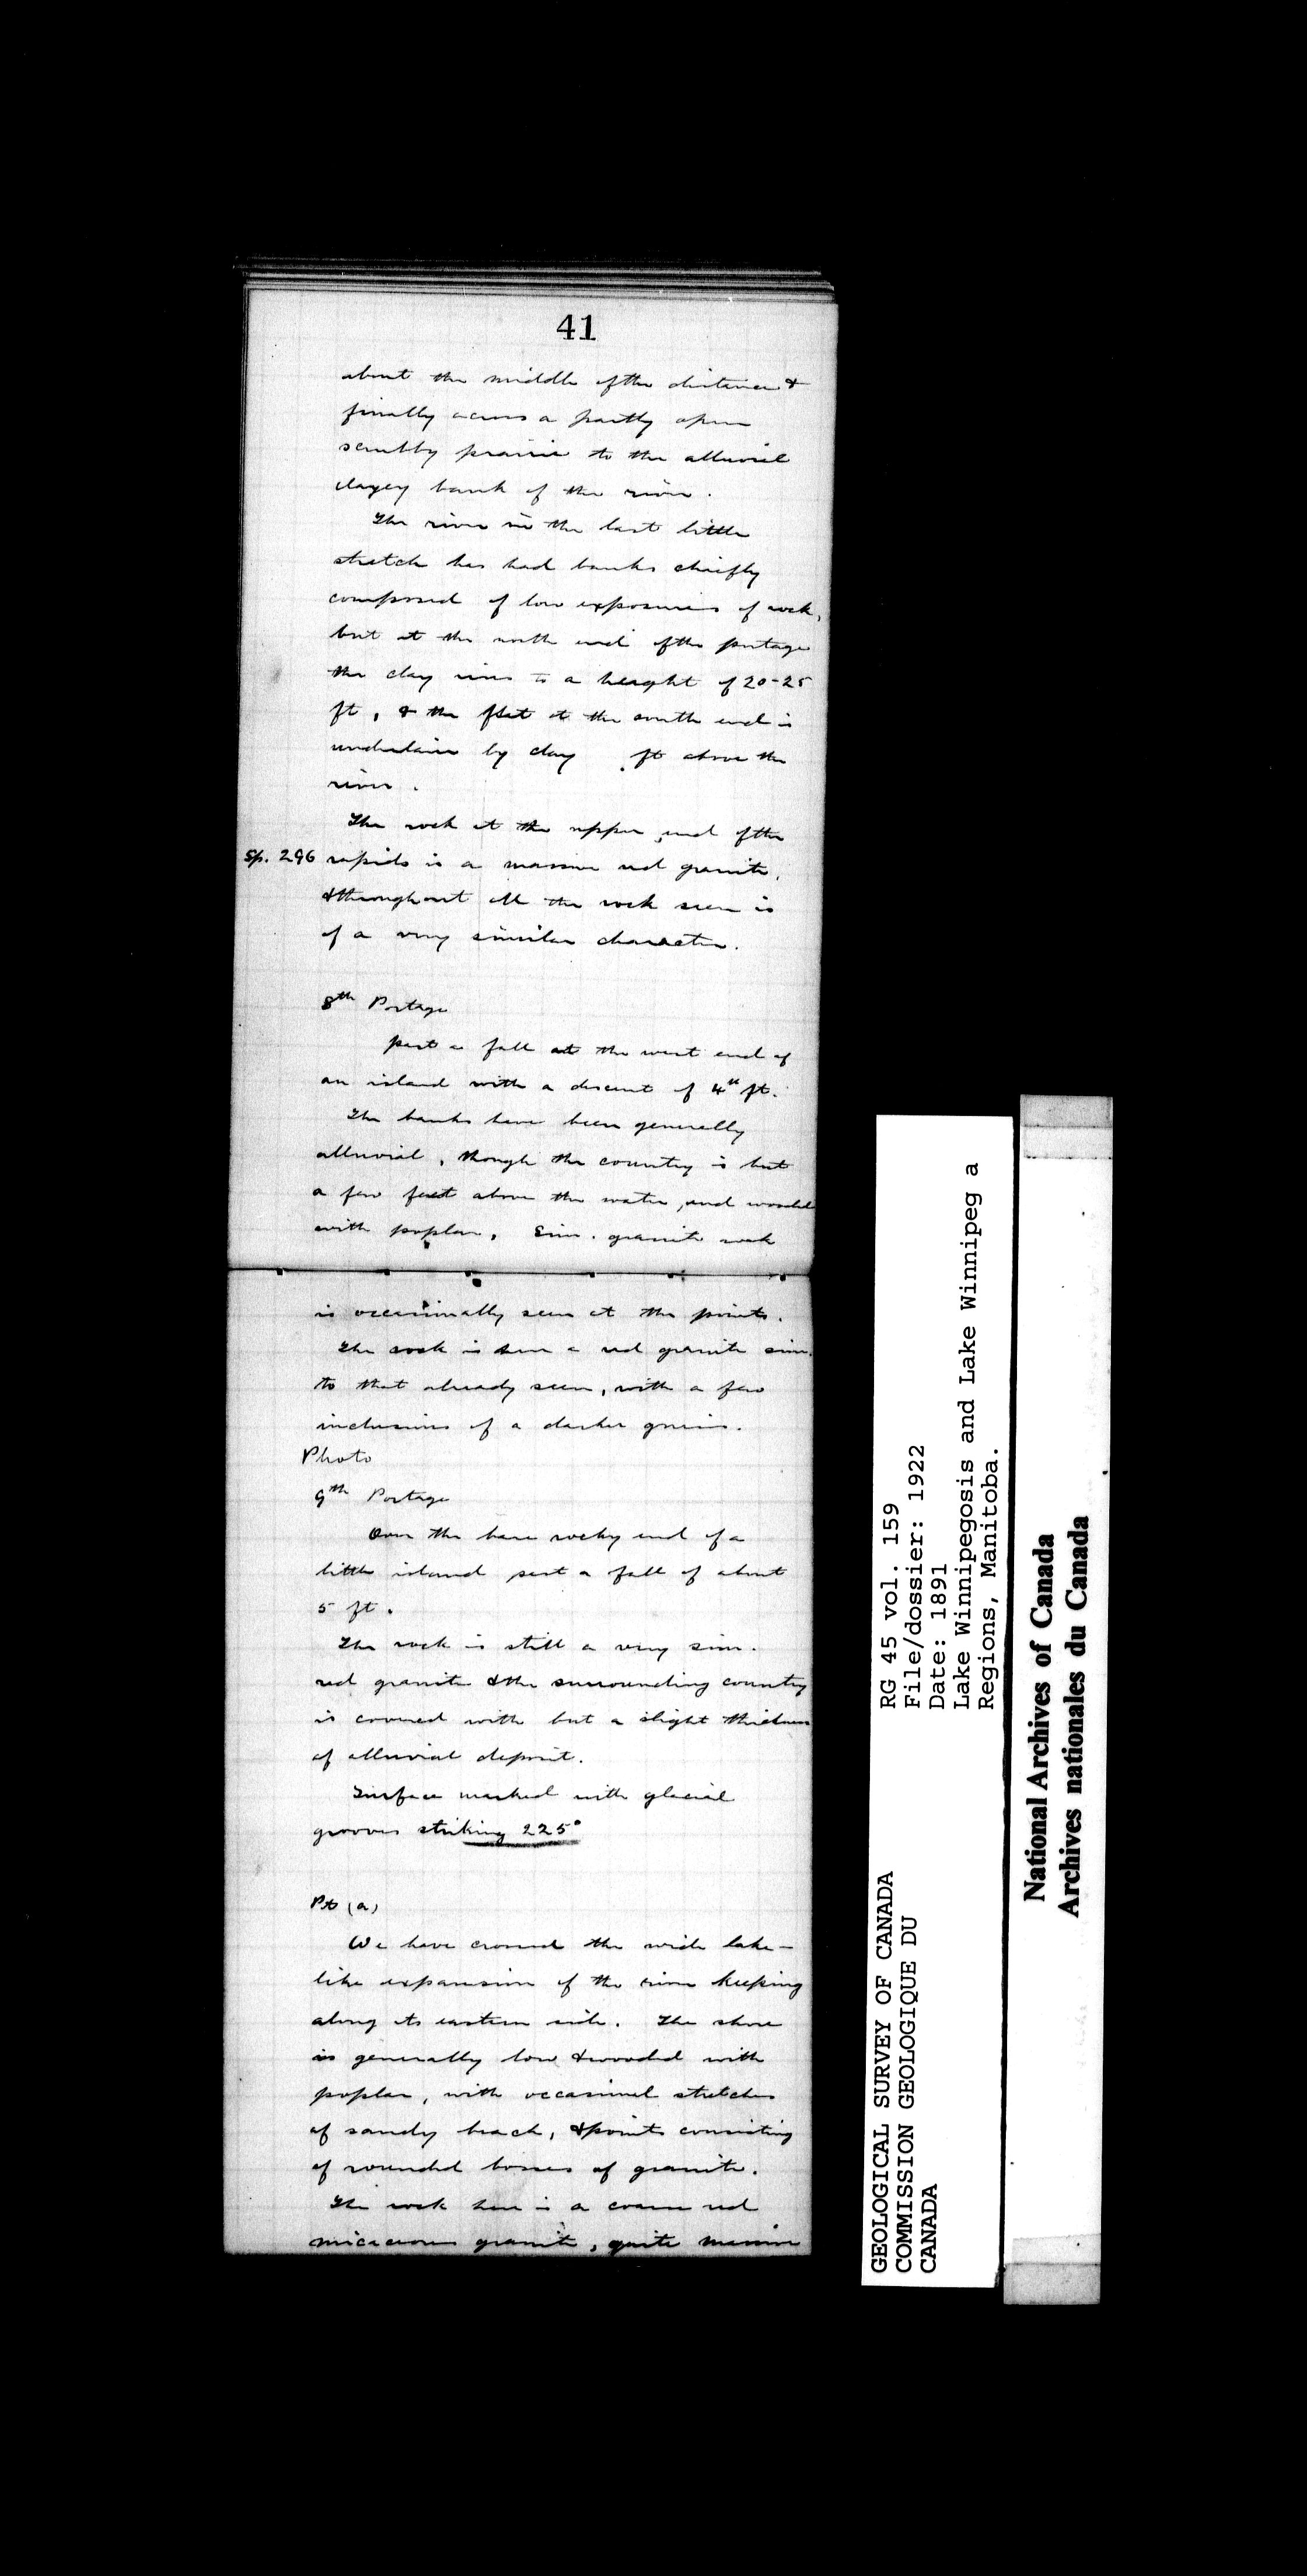 41
about the middle of the distance &
finally across a partly open
scrubby prairie to the alluvial
clayey bank of the river.
The river in the last little
stretch has had banks chiefly
composed of low exposures of rock,
but at the north end of the portage
the clay rises to a height of 20-25
ft, & the flat at the south end is
underlain by clay ft above the
river.
The rock at the upper end of the
Sp. 296 rapids is a massive red granite,
& throughout all the rock seen is
of a very similar character.
8th Portage
past a fall at the west end of
an island with a descent of 4 ft.
The banks have been generally
alluvial, though the country is but
a few feet above the water, and wooded
with poplar. Sim. granite rock
is occasionally seen at the points.
The rock is here a red granite sim.
to that already seen, with a few
inclusions of a darker gneiss.
Photo
9th Portage
Over the bare rocky end of a
little island past a fall of about
5 ft.
The rock is still a very sim.
red granite & the surrounding country
is covered with but a slight thickness
of alluvial deposit.
Surface marked with glacial
grooves striking 225°
Pt (a)
We have crossed the wide lake-
like expansion of the river keeping
along its eastern side. The shore
is generally low & wooded with
poplar, with occasional stretches
of sandy beach, & points consisting
of rounded bosses of granite.
The rock here is a coarse red
micaceous granite, quite massive
GEOLOGICAL SURVEY OF CANADA
COMMISSION GEOLOGIQUE DU
CANADA
RG 45 vol. 159
File/dossier: 1922
Date: 1891
Lake Winnipegosis and Lake Winnipeg a
Regions, Manitoba.
National Archives of Canada
Archives nationales du Canada